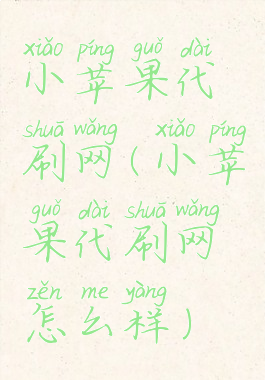 xiǎo píng guǒ dài
小苹果代
shuā wǎng xiǎo píng
刷网(小苹
guǒ dài shuā wǎng
果代刷网
zěn me yàng
怎么样)